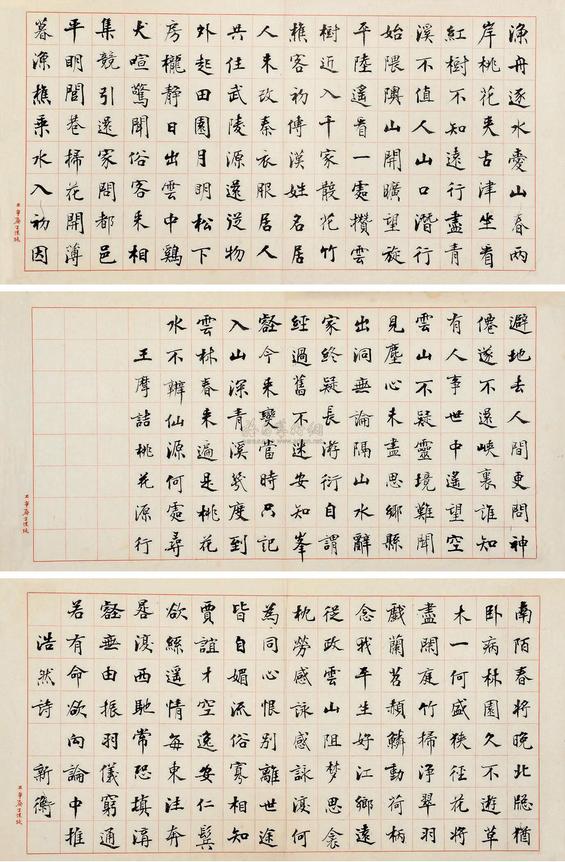 漁舟逐水愛山春兩
岸桃花夾古津坐看
紅樹不知遠行盡青
溪不值人山口潛行
始隈隩山開曠望旋
平陸遙看一處攢雲
樹近入千家散花竹
樵客初傳漢姓名居
人未改秦衣服居人
共住武陵源還從物
外起田園月明松下
房櫳靜日出雲中鷄
犬喧驚聞俗客來相
集競引還家問都邑
平明閭巷掃花開薄
暮漁樵乘水入初因
避地去人間更問神
僊遂不還峽裏誰知
有人事世中遙望空
雲山不疑靈境難聞
見塵心未盡思鄉縣
出洞無論隔山水辭
家終疑長游衍自謂
經過舊不迷安知峯
壑今來變當時只記
入山深青溪幾度到
雲林春來遍是桃花
水不辨仙源何處尋
王摩詰桃花源行
南陌春將晚北牕猶
臥病林園久不遊草
木一何盛狹徑花將
盡閑庭竹掃淨翠羽
戲蘭苕赬鱗動荷柄
念我平生好江鄉遠
從政雲山阻夢思衾
枕勞感詠感詠復何
為同心恨別離世途
皆自媚流俗寡相知
賈誼才空逸安仁鬢
欲絲遙情每東注奔
晷復西馳常恐填溝
壑無由振羽儀窮通
若有命欲向論中推
浩然詩 新衡